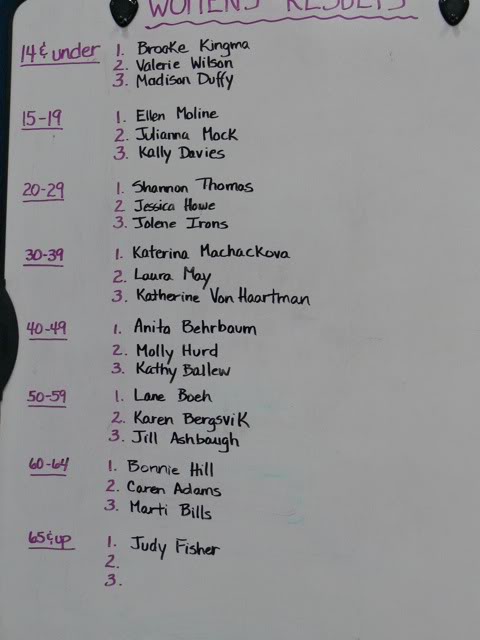 WOMENS RESULTS
14 & under 1. Brooke Kingma
2. Valerie Wilson
3. Madison Duffy
15-19 1. Ellen Moline
2. Julianna Mock
3. Kally Davies
20-29 1. Shannon Thomas
2 Jessica Howe
3. Jolene Irons
30-39 1. Katerina Machackova
2. Laura May
3. Katherine Von Haartman
40-49 1. Anita Behrbaum
2. Molly Hurd
3. Kathy Ballew
50-59 1. Lane Boeh
2. Karen Bergsvik
3. Jill Ashbaugh
60-64 1. Bonnie Hill
2. Caren Adams
3. Marti Bills
65 & up 1. Judy Fisher
2.
3.